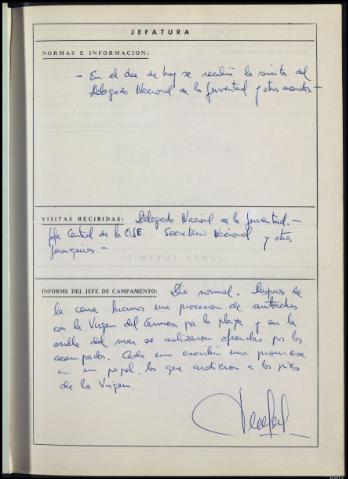 JEFATURA
NORMAS E INFORMACION:
- En el dia de hoy se recibió la visita del
Delegado Nacional de la Juventud y otros mandos -
VISITAS RECIBIDAS: Delegado Nacional de la Juventud. -
Jefe Central de la O.J.E. Secretario Nacional y otras
Jerarquias. -
INFORME DEL JEFE DE CAMPAMENTO: Dia normal. Despues de
la cena hicimos una procesion de antorchas
con la Virgen del Carmen por la playa y en la
orilla del mar se realizaron ofrendas por los
acampados. Cada uno escribió una promesa
en un papel, los que ardieron a los pies
de la Virgen.